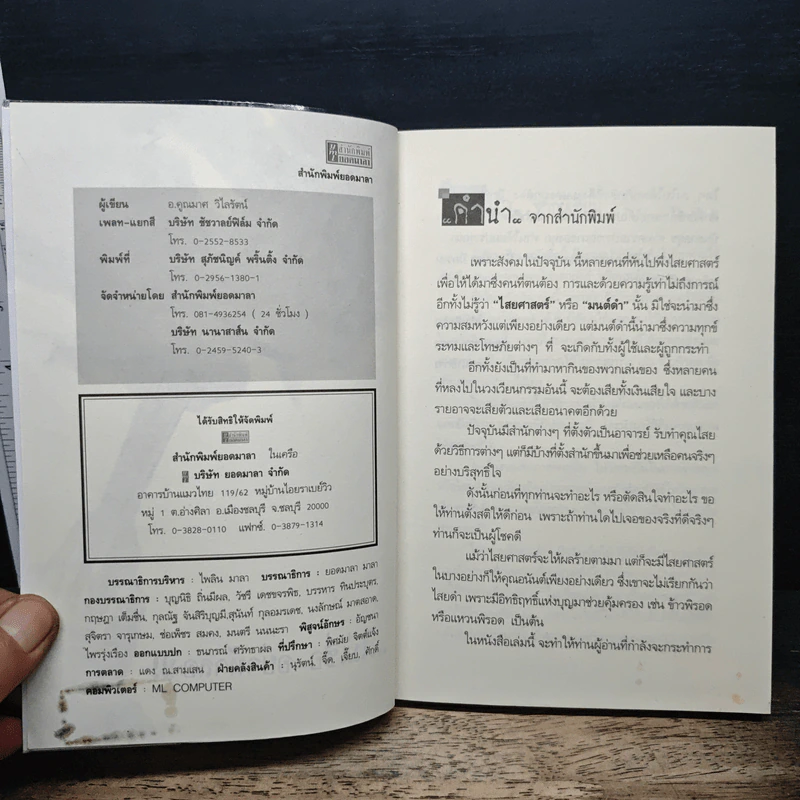 สำนักพิมพ์
ยอดมาลา
สำนักพิมพ์ยอดมาลา
ผู้เขียน อ.คูณมาศ วิไลรัตน์
เพลท-แยกสี บริษัท ชัชวาลย์ฟิล์ม จำกัด
โทร. 0-2552-8533
พิมพ์ที่ บริษัท สุภัชนิญค์ พริ้นติ้ง จำกัด
โทร. 0-2956-1380-1
จัดจำหน่ายโดย สำนักพิมพ์ยอดมาลา
โทร. 081-4936254 ( 24 ชั่วโมง )
บริษัท นานาสาส์น จำกัด
โทร. 0-2459-5240-3
ได้รับสิทธิให้จัดพิมพ์
สำนักพิมพ์ยอดมาลา ในเครือ
บริษัท ยอดมาลา จำกัด
อาคารบ้านแมวไทย 119/62 หมู่บ้านไอยราเบย์วิว
หมู่ 1 ต.อ่างศิลา อ.เมืองชลบุรี จ.ชลบุรี 20000
โทร. 0-3828-0110 แฟกซ์. 0-3879-1314
บรรณาธิการบริหาร : ไพลิน มาลา บรรณาธิการ : ยอดมาลา มาลา
กองบรรณาธิการ : บุญนิธิ ถิ่นมีผล, วัชรี เดชขจรพิช, บรรหาร หินประบุตร,
กฤษฎา เต็มชื่น, กุลณัฐ จันสิริบุญมี,สุนันท์ กุลอมรเดช, นงลักษณ์ มาตสอาด,
สุจิตรา จารุเกษม, ช่อเพ็ชร สมคง, มนตรี นนนะรา พิสูจน์อักษร : อัญชนา
ไพรรุ่งเรือง ออกแบบปก : ธนาภรณ์ ศรัทธาผล ที่ปรึกษา : พิศมัย จิตต์แจ้ง
การตลาด : แดง ณ.สามเสน ฝ่ายคลังสินค้า : นุรัตน์, จี๊ด, เจี๊ยบ, ศักดิ์
คอมพิวเตอร์ : ML COMPUTER
คำนำ จากสำนักพิมพ์
เพราะสังคมในปัจจุบัน นี้หลายคนที่หันไปพึ่งไสยศาสตร์
เพื่อให้ได้มาซึ่งคนที่ตนต้อง การและด้วยความรู้เท่าไม่ถึงการณ์
อีกทั้งไม่รู้ว่า “ไสยศาสตร์” หรือ “มนต์ดำ” นั้น มิใช่จะนำมาซึ่ง
ความสมหวังแต่เพียงอย่างเดียว แต่มนต์ดำนี้นำมาซึ่งความทุกข์
ระทมและโทษภัยต่างๆ ที่ จะเกิดกับทั้งผู้ใช้และผู้ถูกกระทำ
อีกทั้งยังเป็นที่ทำมาหากินของพวกเล่นของ ซึ่งหลายคน
ที่หลงไปในวงเวียนกรรมอันนี้ จะต้องเสียทั้งเงินเสียใจ และบาง
รายอาจจะเสียตัวและเสียอนาคตอีกด้วย
ปัจจุบันมีสำนักต่างๆ ที่ตั้งตัวเป็นอาจารย์ รับทำคุณไสย
ด้วยวิธีการต่างๆ แต่ก็มีบ้างที่ตั้งสำนักขึ้นมาเพื่อช่วยเหลือคนจริงๆ
อย่างบริสุทธิ์ใจ
ดังนั้นก่อนที่ทุกท่านจะทำอะไร หรือตัดสินใจทำอะไร ขอ
ให้ท่านตั้งสติให้ดีก่อน เพราะถ้าท่านใดไปเจอของจริงที่ดีจริงๆ
ท่านก็จะเป็นผู้โชคดี
แม้ว่าไสยศาสตร์จะให้ผลร้ายตามมา แต่ก็จะมีไสยศาสตร์
ในบางอย่างก็ให้คุณอนันต์เพียงอย่างเดียว ซึ่งเขาจะไม่เรียกกันว่า
ไสยดำ เพราะมีอิทธิฤทธิ์แห่งบุญมาช่วยคุ้มครอง เช่น ข้าวพิรอด
หรือแหวนพิรอด เป็นต้น
ในหนังสือเล่มนี้ จะทำให้ท่านผู้อ่านที่กำลังจะกระทำการ